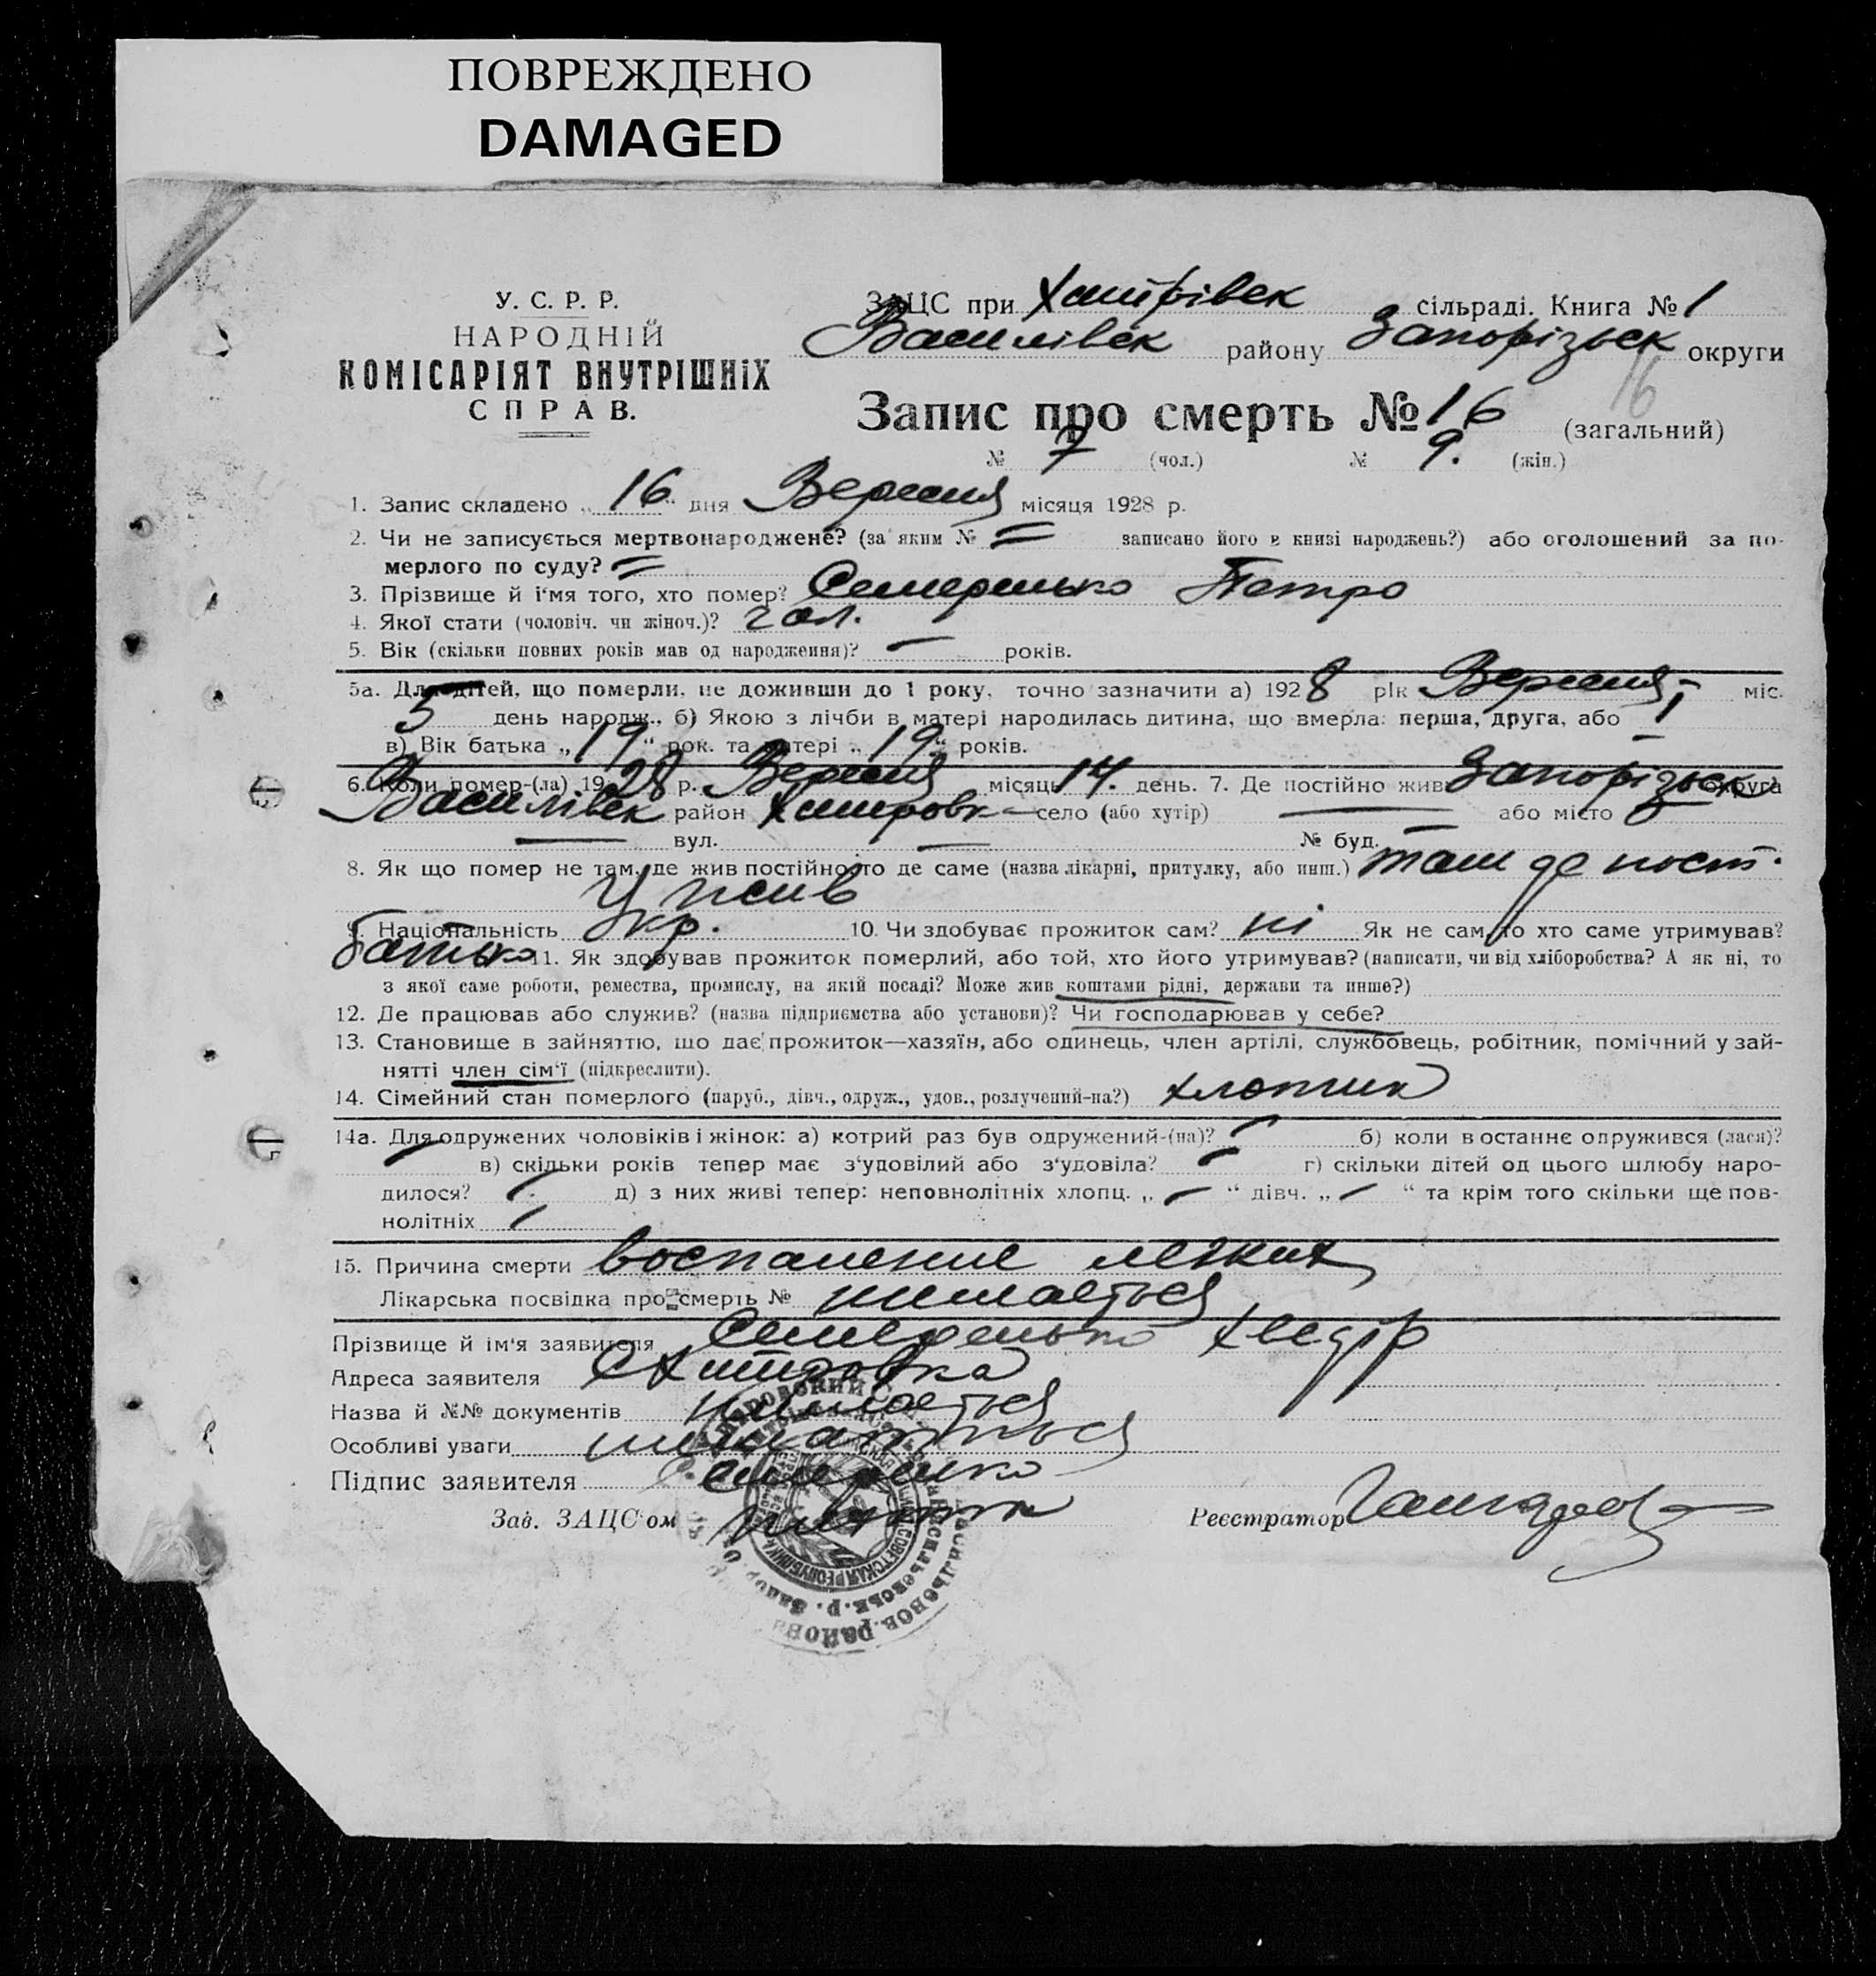 ПОВРЕЖДЕНО
DAMAGED
У. С. Р. Р.
НАРОДНІЙ
КОМІСАРІЯТ ВНУТРІШНІХ
СПРАВ.
ЗАЦС при Хитрівск сільраді. Книга № 1
Василівск району Запорізьск округи
16
Запис про смерть № 16 (загальний)
№ 7 (чол.) № 9. (жін.)
1. Запис складено „ 16 “ дня Вересня місяця 1928 р.
2. Чи не записується мертвонароджене? (за яким № = записано його в книзі народжень?) або оголошений за по-
мерлого по суду? =
3. Прізвище й і'мя того, хто помер? Семеренько Петро
4. Якої стати (чоловіч. чи жіноч.)? чол.
5. Вік (скільки повних років мав од народження)? — років.
5а. Для дітей, що померли, не доживши до 1 року, точно зазначити а) 1928 рік Вересня міс.
5 день народж., б) Якою з лічби в матері народилась дитина, що вмерла: перша, друга, або 1
в) Вік батька „ 19 “ рок. та матері „ 19 “ років.
6. Коли помер-(ла) 1928 р. Вересня місяць 14. день. 7. Де постійно жив Запорізьск округа
Василівск район Хитровк село (або хутір) — або місто
— вул. — № буд. —
8. Як що помер не там, де жив постійно, то де саме (назва лікарні, притулку, або инш.) там де пост.
жив
9. Національність Укр. 10. Чи здобуває прожиток сам? ні Як не сам, то хто саме утримував?
батько 11. Як здобував прожиток померлий, або той, хто його утримував? (написати, чи від хліборобства? А як ні, то
з якої саме роботи, ремества, промислу, на якій посаді? Може жив коштами рідні, держави та инше?)
12. Де працював або служив? (назва підприємства або установи)? Чи господарював у себе?
13. Становище в зайняттю, що дає прожиток—хазяїн, або одинець, член артілі, службовець, робітник, помічний у зай-
нятті член сім'ї (підкреслити).
14. Сімейний стан померлого (паруб., дівч., одруж., удов., розлучений-на?) хлопчик
14а. Для одружених чоловіків і жінок: а) котрий раз був одружений-(на)? — б) коли в останнє одружився (лася)?
— в) скільки років тепер має з'удовілий або з'удовіла? — г) скільки дітей од цього шлюбу наро-
дилося? — д) з них живі тепер: неповнолітніх хлопц. „ — “ дівч. „ — “ та крім того скільки ще пов-
нолітніх —
15. Причина смерти воспаление легких
Лікарська посвідка про смерть № нимається
Прізвище й ім'я заявителя Семеренько Хведір
Адреса заявителя с Хитровка
Назва й №№ документів нимаеться
Особливі уваги нимаиться
Підпис заявителя Семеренко
Зав. ЗАЦС'ом
Реєстратор
СОВЕТСКАЯ РЕСПУБЛИКА
Васильевск. р. Запор.
Васильевов. район